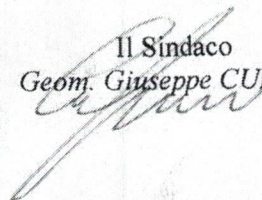 Il Sindaco
Geom. Giuseppe CU